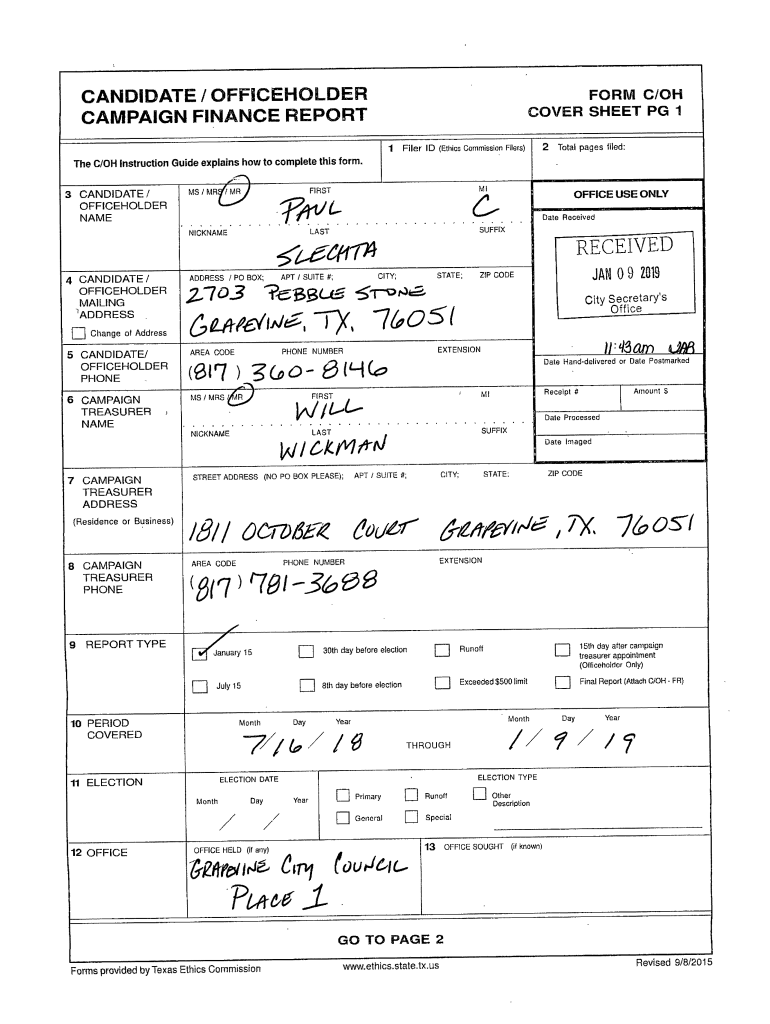 CANDIDATE / OFFICEHOLDER
CAMPAIGN FINANCE REPORT
FORM C/OH
COVER SHEET PG 1
The C/OH Instruction Guide explains how to complete this form.
1 Filer ID (Ethics Commission Filers)
2 Total pages filed:
3 CANDIDATE /
OFFICEHOLDER
NAME
MS / MRS / MR FIRST MI
PAUL C
NICKNAME LAST SUFFIX
SLECHTA
OFFICE USE ONLY
Date Received
RECEIVED
JAN 09 2019
City Secretary's
Office
11:43am
Date Hand-delivered or Date Postmarked
Receipt # Amount $
Date Processed
Date Imaged
4 CANDIDATE /
OFFICEHOLDER
MAILING
ADDRESS
Change of Address
ADDRESS / PO BOX; APT / SUITE #; CITY; STATE; ZIP CODE
2703 PEBBLE STONE
GRAPEVINE, TX, 76051
5 CANDIDATE/
OFFICEHOLDER
PHONE
AREA CODE PHONE NUMBER EXTENSION
(817) 360-8146
6 CAMPAIGN
TREASURER
NAME
MS / MRS / MR FIRST MI
WILL
NICKNAME LAST SUFFIX
WICKMAN
7 CAMPAIGN
TREASURER
ADDRESS
(Residence or Business)
STREET ADDRESS (NO PO BOX PLEASE); APT / SUITE #; CITY; STATE; ZIP CODE
1811 OCTOBER COURT GRAPEVINE, TX. 76051
8 CAMPAIGN
TREASURER
PHONE
AREA CODE PHONE NUMBER EXTENSION
(817) 781-3688
9 REPORT TYPE
January 15 30th day before election Runoff 15th day after campaign
treasurer appointment
(Officeholder Only)
July 15 8th day before election Exceeded $500 limit Final Report (Attach C/OH - FR)
10 PERIOD
COVERED
Month Day Year Month Day Year
7/16/18 THROUGH 1/9/19
11 ELECTION
ELECTION DATE
Month Day Year
/ /
ELECTION TYPE
Primary Runoff Other
Description
General Special
12 OFFICE
OFFICE HELD (if any)
GRAPEVINE CITY COUNCIL
PLACE 1
13 OFFICE SOUGHT (if known)
GO TO PAGE 2
Forms provided by Texas Ethics Commission www.ethics.state.tx.us Revised 9/8/2015